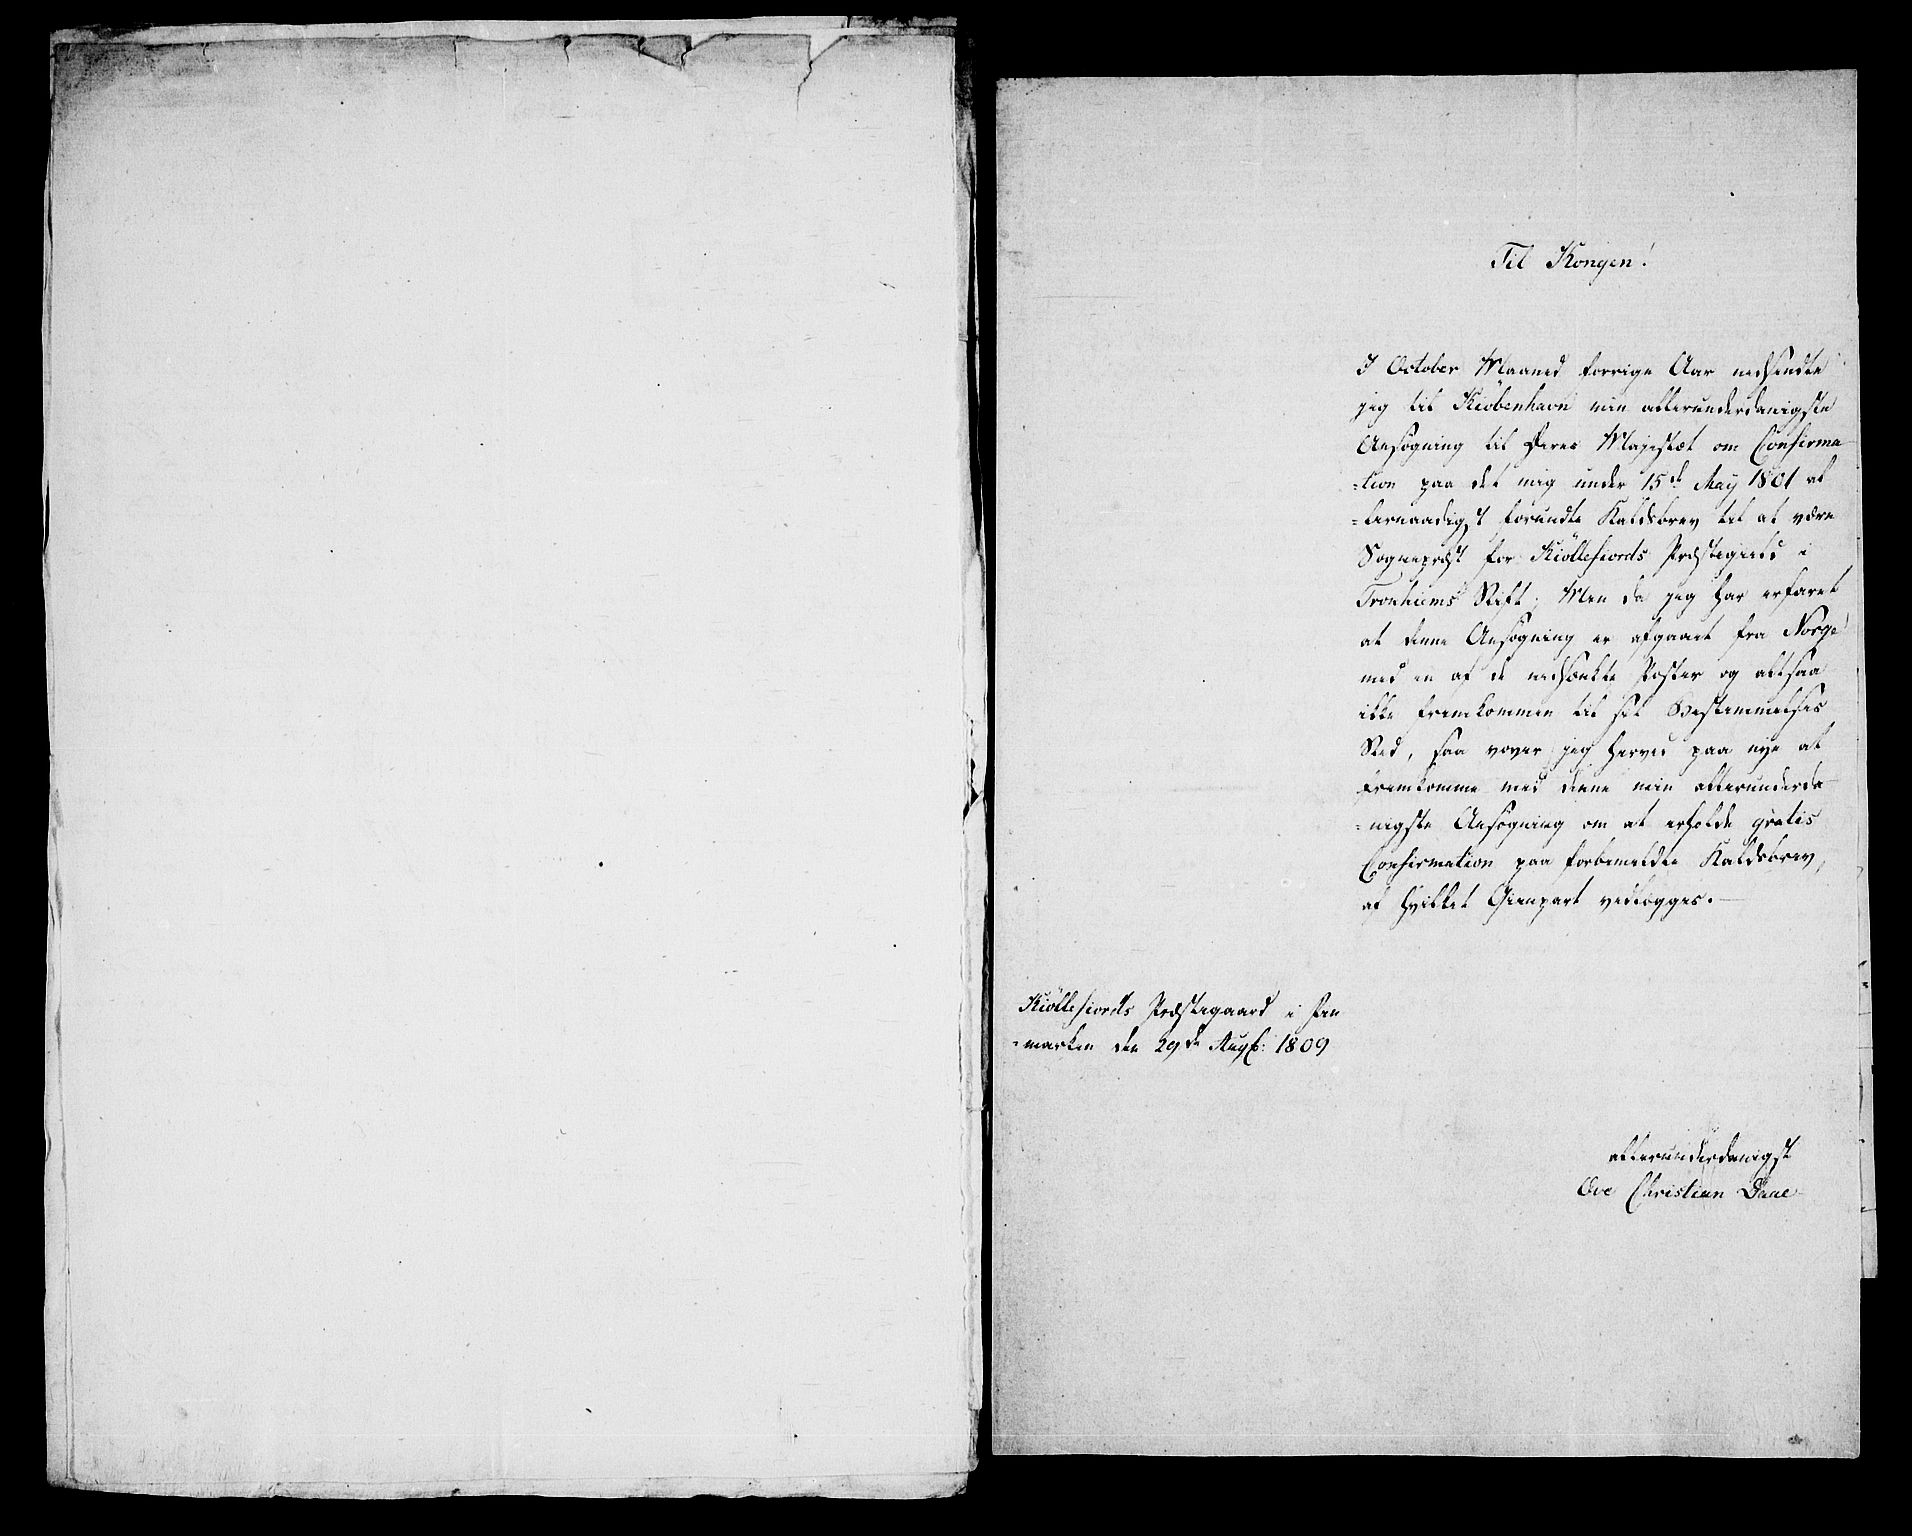 Til Kongen!
I October Maaned forrige Aar nedsendte
jeg til Kiöbenhavn min allerunderdanigste
Ansøgning til Deres Majestæt om Confirma-
=tion paa det mig under 15de May 1801 al
=lernaadigst forundte Kaldsbrev til at være
Sognepræst for Kiöllefiords Præstegield i
Tronhiems Stift; Men da jeg har erfaret
at denne Ansøgning er afgaaet fra Norge
med en af de nedsænkte Poster og altsaa
ikke fremkommen til sit Bestemmelses
Sted, saa vover jeg herved paa nye at
fremkomme med denne min allerunderda-
=nigste Ansøgning om at erholde gratis
Confirmation paa forbemeldte Kaldsbrev,
af hvilket Gienpart vedlegges.
Kiöllefiords Præstegaard i Fin
=marken den 29de Aug: 1809
allerunderdanigst
Ove Christian Daae